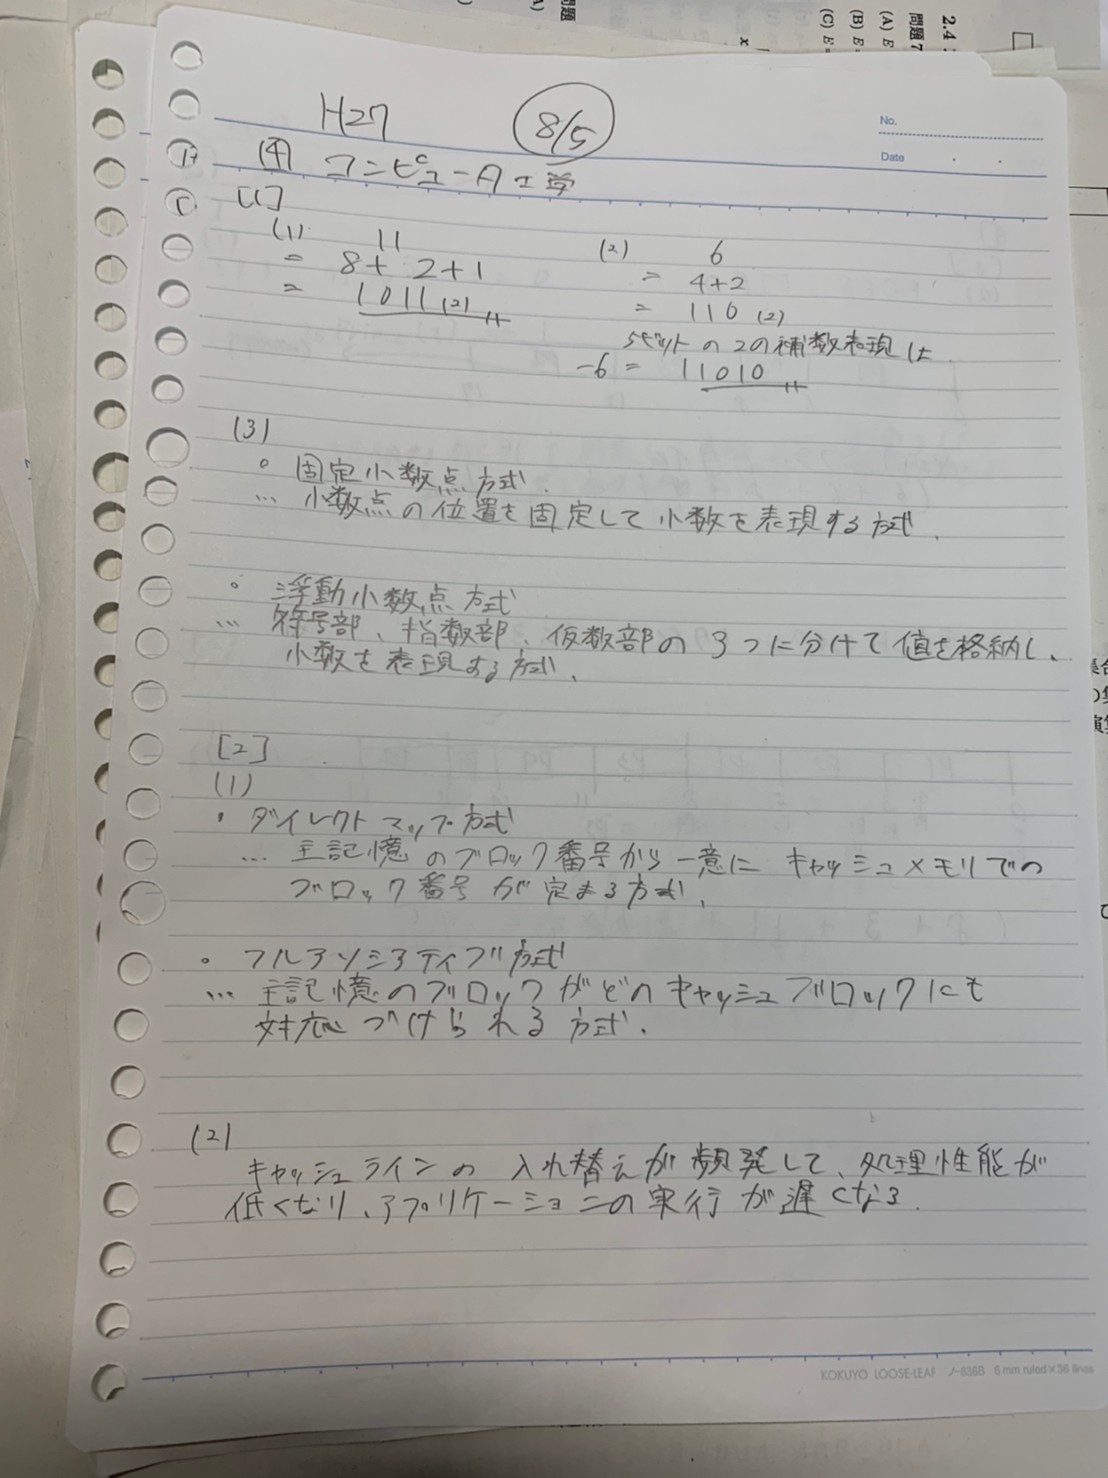 2.4
問題7
(A) E
(B) E
(C) E=
x
問題
(A)
No.
Date
H27
8/5
(4) コンピュータ工学
[1]
(1) 11
= 8+ 2+1
= 1011(2)
(2) 6
= 4+2
= 110 (2)
5ビットの2の補数表現は
-6 = 11010
(3)
。固定小数点方式
… 小数点の位置を固定して小数を表現する方式.
。浮動小数点方式
… 符号部、指数部、仮数部の3つに分けて値を格納し、
小数を表現する方式.
[2]
(1)
・ダイレクトマップ方式
… 主記憶のブロック番号から一意にキャッシュメモリでの
ブロック番号が定まる方式.
。フルアソシアティブ方式
… 主記憶のブロックがどのキャッシュブロックにも
対応づけられる方式.
(2)
キャッシュラインの入れ替えが頻発して、処理性能が
低くなり、アプリケーションの実行が遅くなる.
KOKUYO LOOSE-LEAF ノ-836B 6mm ruled×36 lines